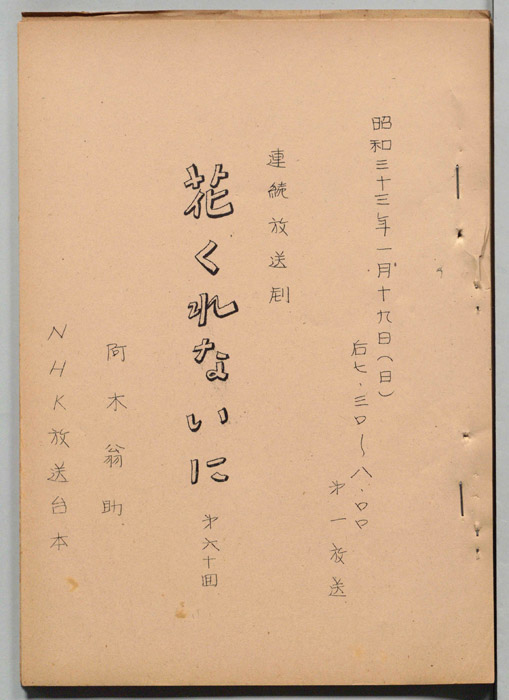 昭和三十三年一月十九日(日)
后七.三〇〜八.〇〇
第一放送
連続放送劇
花くれないに
第六十回
阿木翁助
NHK放送台本